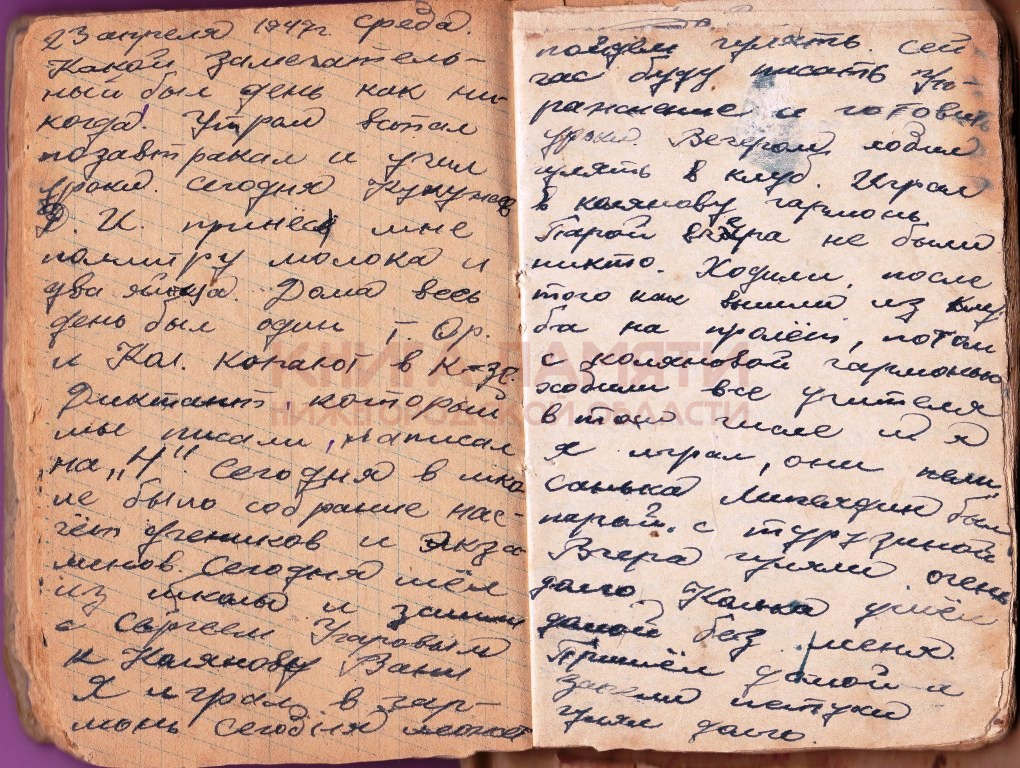 23 апреля 1947г. среда.
Какой замечатель-
ный был день как ни-
когда. Утром встал
позавтракал и учил
уроки. Сегодня
И. принёс мне
поллитру молока и
два яйца. Дома весь
день был один Ор.
и Кол. копают в К-зе.
Диктант который
мы писали, написал
на „4". Сегодня в шко
ле было собрание нас-
чёт учеников и экза
минов. Сегодня шёл
из школы и зашли
с Сергеем Угаровым
к Колянову Вани
Я играл в гар-
монь сегодня может
пойдём гулять. Сей
час буду писать Уп-
ражнение и готовить
уроки. Вечером ходил
гулять в клуб. Играл
в колянову гармонь
Парой вчера не были
никто. Ходили, после
того как вышли из клу
ба на пролёт, потом
с коляновой гармонью
ходили все учителя
в том числе и я
Я играл, они пели
Санька был
парой с
Вчера гуляли очень
долго Колька ушёл
домой без меня.
Пришёл домой а
запели петухи
гулял долго.
КНИГА ПАМЯТИ
НИЖЕГОРОДСКОЙ ОБЛАСТИ